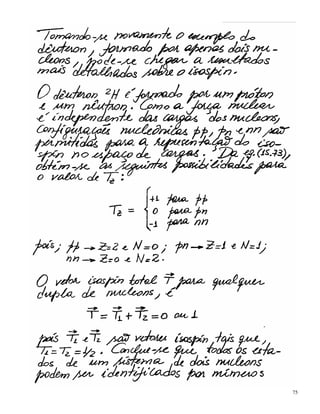 Tomando-se novamente o exemplo do
dêuteron, formado por apenas dois nu-
cleons, pode-se chegar a resultados
mais detalhados sobre o isospin.
O dêuteron ²H é formado por um próton
e um nêutron. Como a força nuclear
é independente das cargas dos nucleons,
configurações nucleônicas pp, pn e nn são
permitidas para a representação do iso-
spin no espaço de cargas. Da eq. (15.73),
obtém-se as seguintes possibilidades para
o valor de T_z:
T_z = { +1 para pp
0 para pn
-1 para nn
pois, pp → Z=2 e N=0; pn → Z=1 e N=1;
nn → Z=0 e N=2.
O vetor isospin total T⃗ para qualquer
dupla de nucleons, é
T⃗ = T⃗₁ + T⃗₂ = 0 ou 1
pois T⃗₁ e T⃗₂ são vetores isospin, tais que,
T₁ = T₂ = 1/2. Conclue-se que, todos os esta-
dos de um sistema de dois nucleons
podem ser identificados por números
75